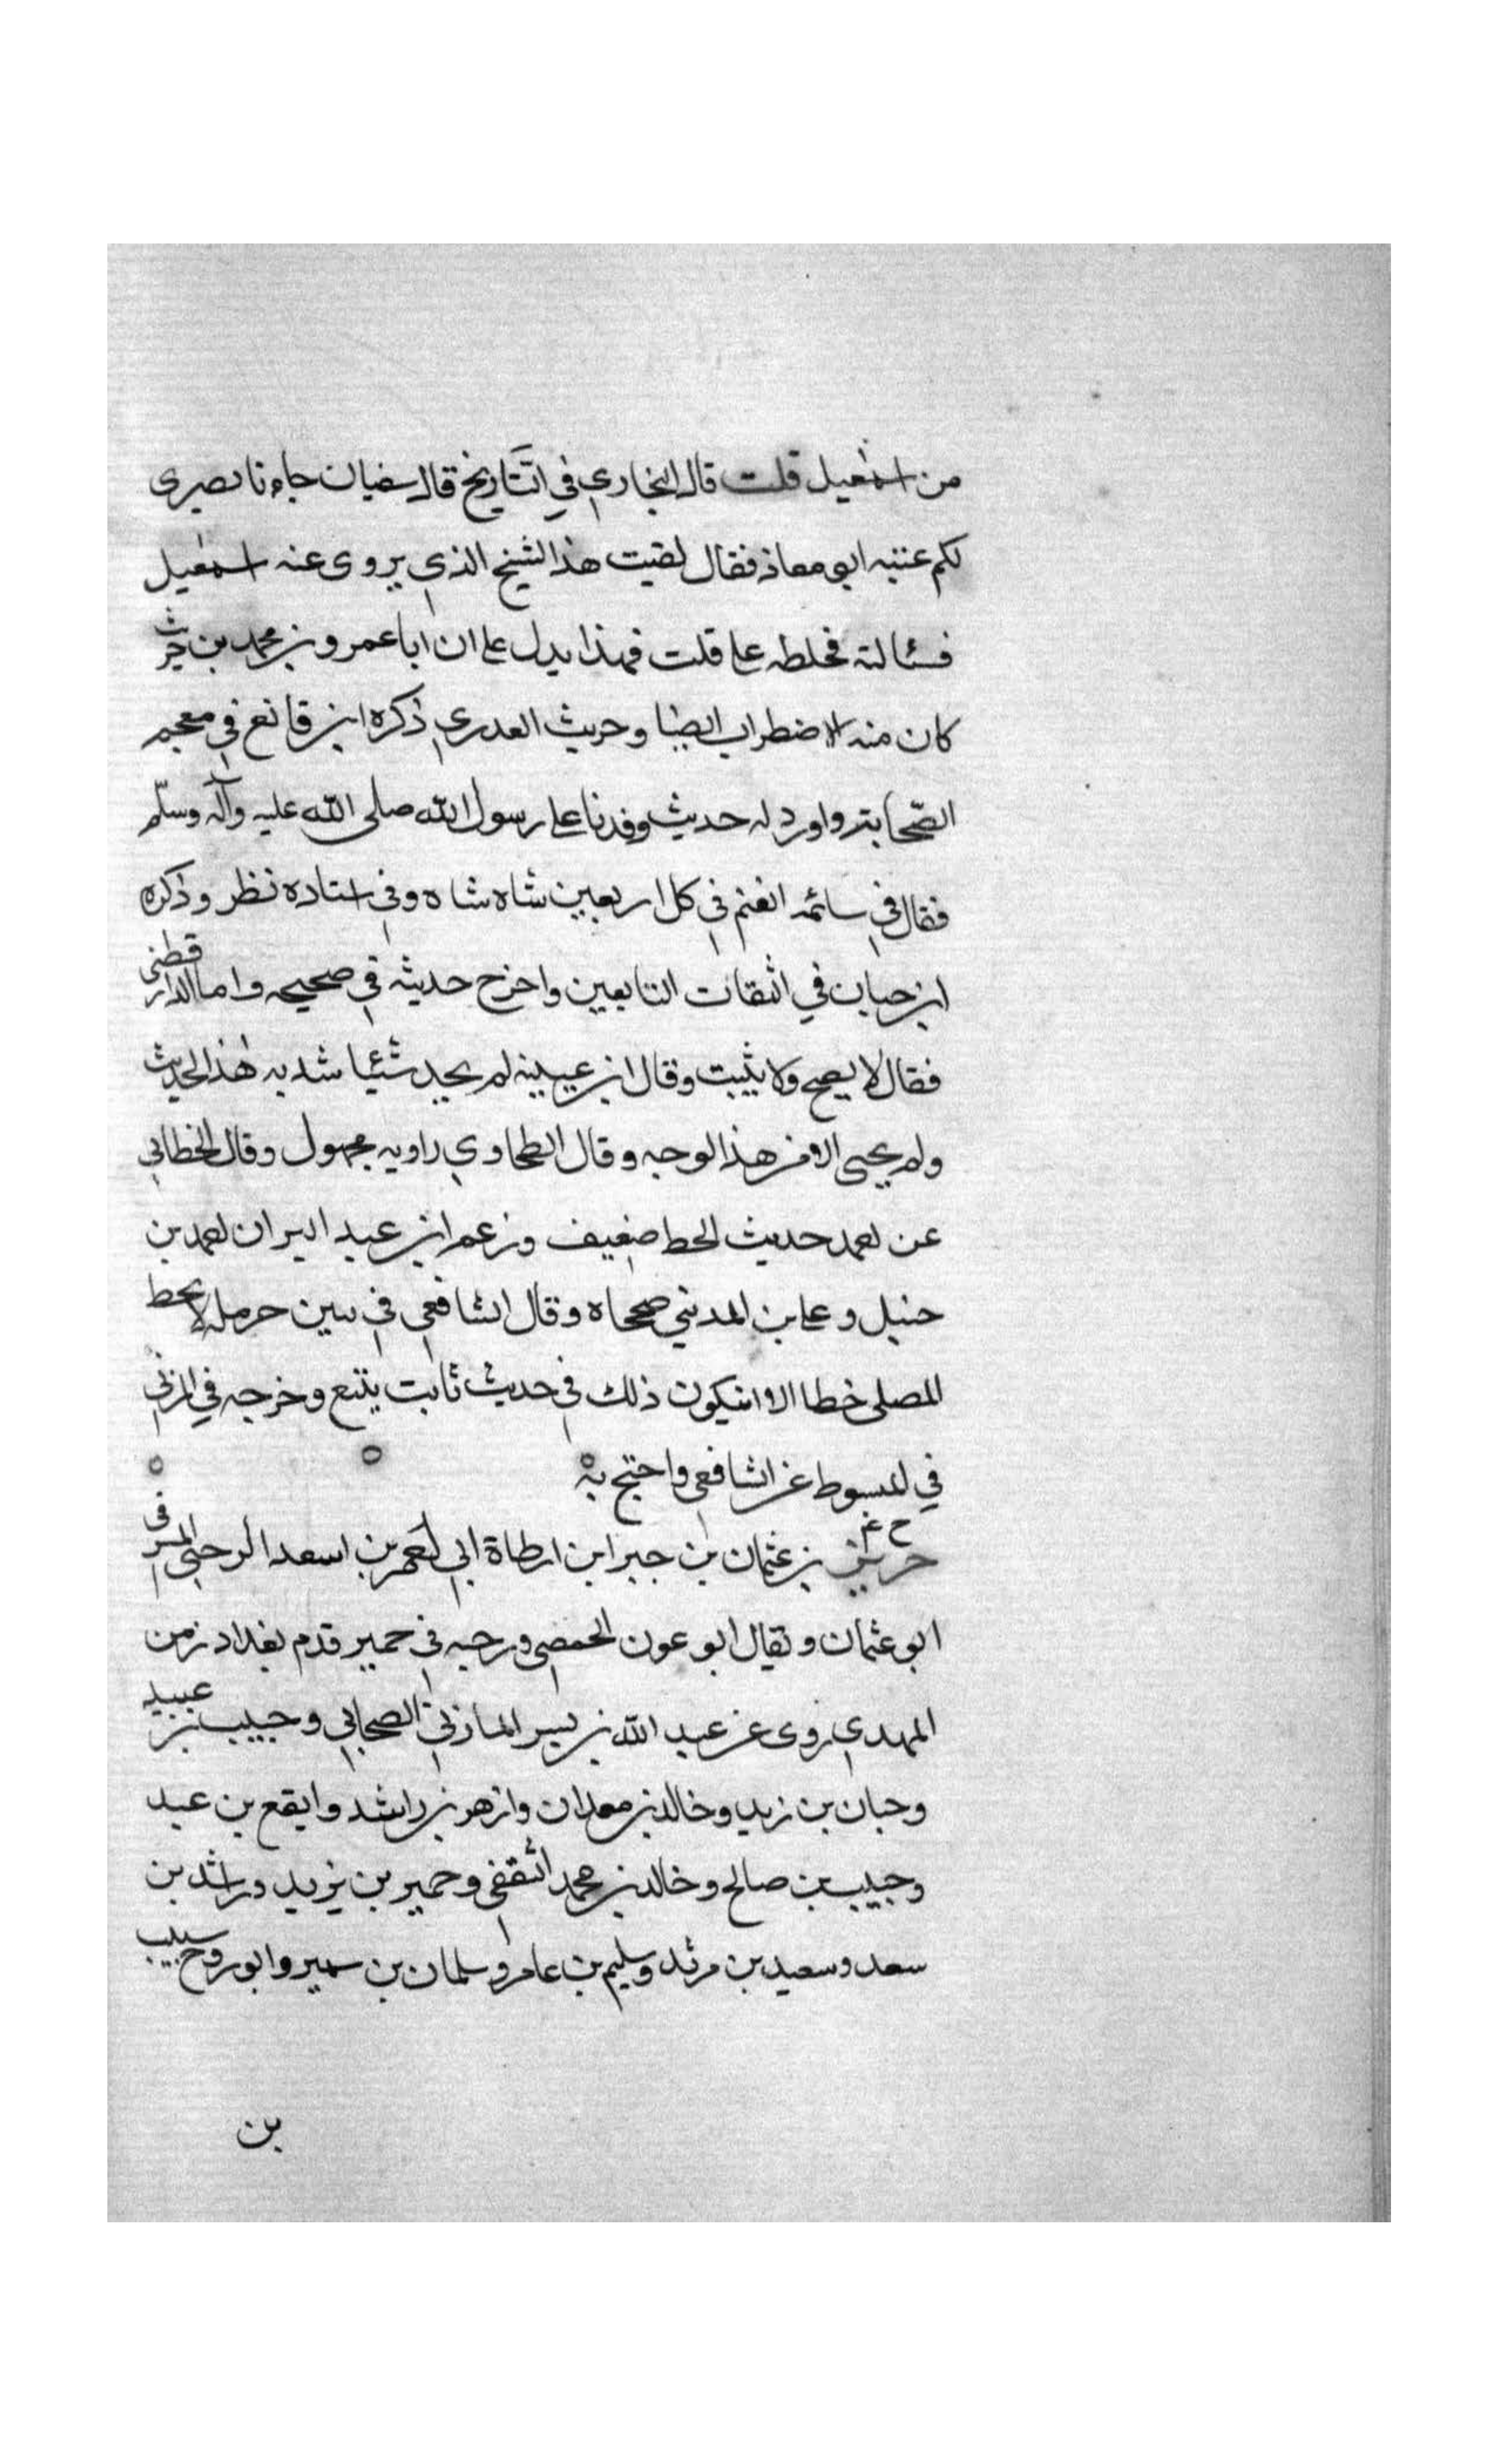 من اسمعيل قلت قال البخاري في التاريخ قال سفيان جاءنا بصرى
لكم عنبه ابو معاذ فقال لقيت هذا الشيخ الذي يروى عنه اسمعيل
فسئالته فخلطه على قلت فهذا يدل على ان ابا عمرو بن محمد بن حريث
كان منه الاضطراب ايضا وحريث العدري ذكره ابن قانع في معجم
الصحابة واورد له حديث وفدنا على رسول الله صلى الله عليه وآله وسلم
فقال في سائمه الغنم في كل اربعين شاه شاه وفي اسناده نظر وذكره
ابن حبان في الثقات التابعين واخرج حديثه في صحيحه واما الدارقطني
فقال لا يصح ولا يثبت وقال ابن عيينه لم يجد شئيا شد به هذا الحديث
ولم يجيى الا من هذا الوجه وقال الطحاوي راويه مجهول وقال الخطابي
عن احمد حديث الخط ضعيف وزعم ابن عبد البر ان احمد بن
حنبل وعلى بن المدني صححاه وقال الشافعي في سنن حرمله لا يخط
المصلى خطا الا انيكون ذلك في حديث ثابت يتبع وخرجه في المزني
في المبسوط عن الشافعي واحتج به
ح عم
حريز بن عثمان بن جبر ابن ارطاة ابي احمر بن اسعد الرحبي المشرقي
ابو عثمان ويقال ابو عون الحمصي ورحبه في حمير قدم بغداد زمن
المهدي روى عن عبد الله بن بسر المازني الصحابي وحبيب بن عبيد
وحبان بن زيد وخالد بن معدان وازهر بن راشد وايفع بن عبد
وحبيب بن صالح وخالد بن محمد الثقفي وحمير بن يزيد وراشد بن
سعد وسعيد بن مرثد وسليم بن عامر وسلمان بن سمير وابو روح سبيب
بن